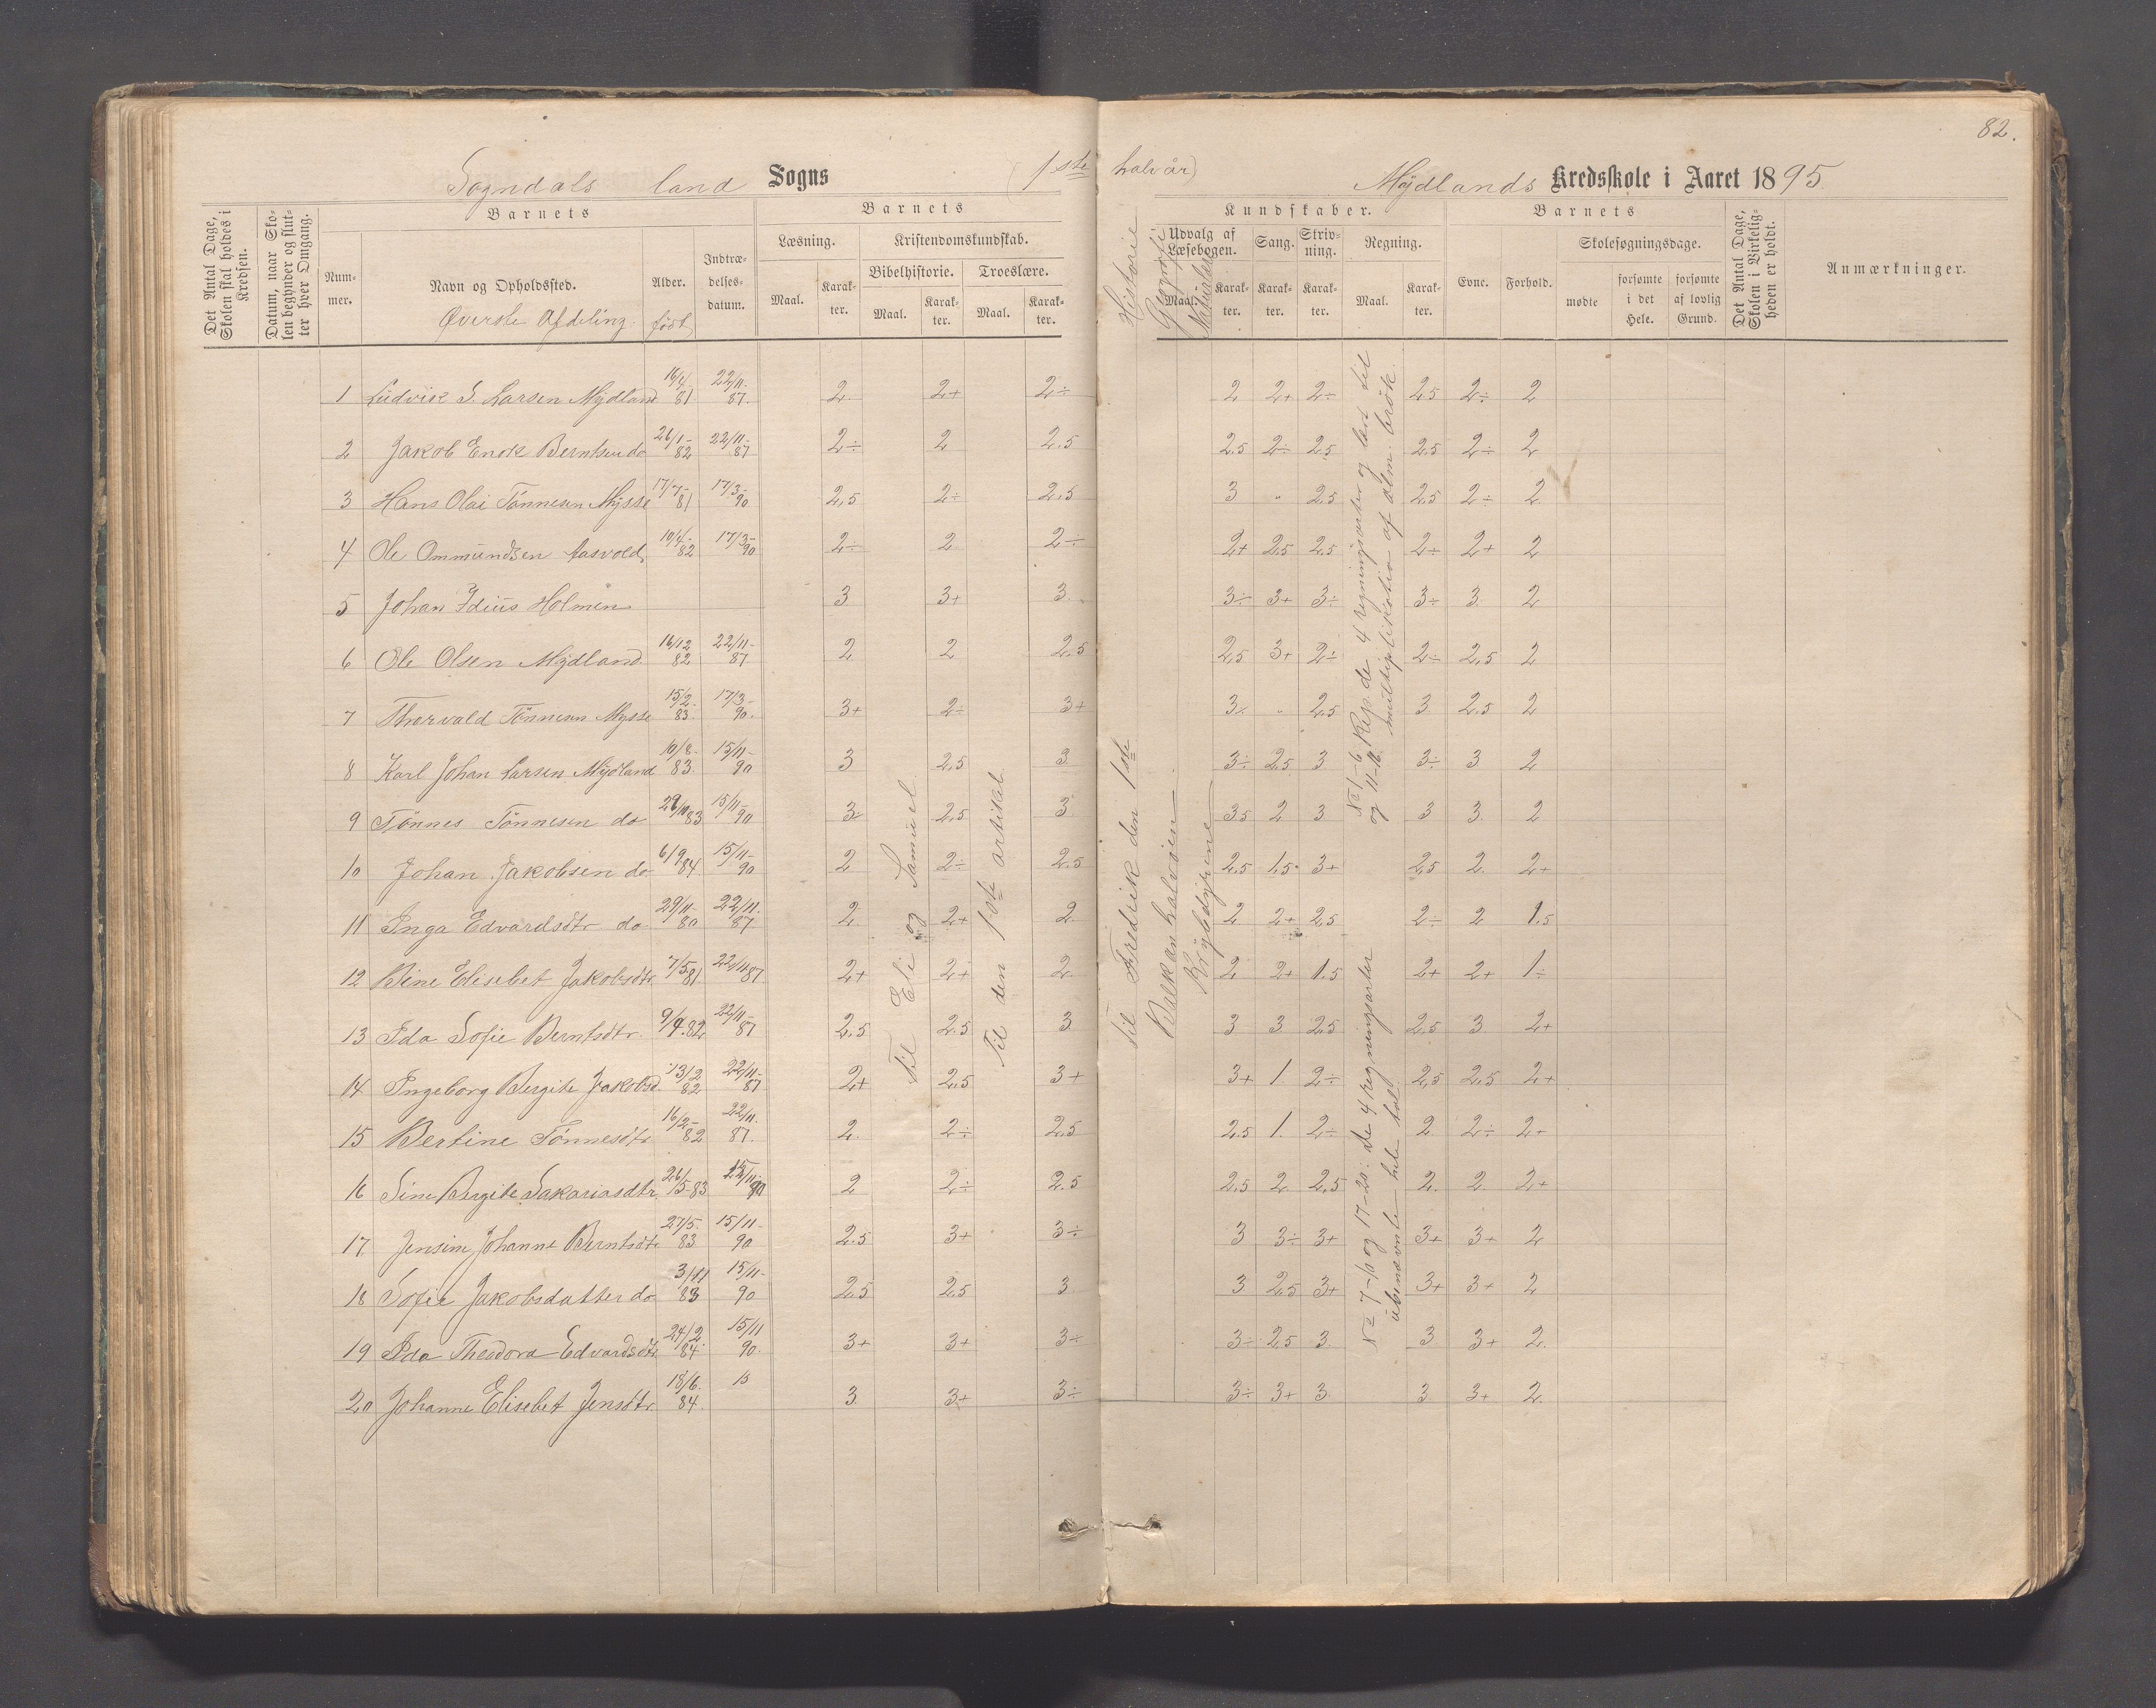 82.
Sogndals land Sogns (1ste halvår) Mydlands Kredsskole i Aaret 1895
Det Antal Dage, Skolen skal holdes i Kredsen.
Datum, naar Skolen begynder og slutter hver Omgang.
Barnets
Nummer.
Navn og Opholdssted.
Øverste Afdeling.
Alder.
født
Indtrædelsesdatum.
Barnets Kundskaber.
Læsning.
Maal. Karakter.
Kristendomskundskab.
Bibelhistorie. Troeslære.
Maal. Karakter. Maal. Karakter.
Historie
Geografi
Udvalg af Læsebogen. Sang. Skrivning. Regning.
Maal. Karakter. Karakter. Karakter. Maal. Karakter.
Barnets
Evne. Forhold.
Skolesøgningsdage.
mødte forsømte i det Hele. forsømte af lovlig Grund.
Det Antal Dage, Skolen i Virkeligheden er holdt.
Anmærkninger.
1 Ludvik S. Larsen Mydland 16/4 81 22/11-87. 2 2+ 2÷ 2 2+ 2÷ 2,5 2÷ 2
2 Jakob Enok Berntsen do 26/1-82 22/11-87 2÷ 2 2.5 2.5 2÷ 2,5 2,5 2÷ 2
3 Hans Olai Tönnesen Mysse 17/7-81 17/3-90 2,5 2÷ 2.5 3 " 2,5 2,5 2÷ 2
4 Ole Ommundsen Aasvold 10/4-82 17/3-90 2÷ 2 2÷ 2+ 2,5 2,5 2÷ 2+ 2
5 Johan Idius Holmen 3 3+ 3 3÷ 3+ 3÷ 3÷ 3 2
6 Ole Olsen Mydland 16/12 82 22/11-87 2 2 2,5 2,5 3+ 2÷ 2÷ 2,5 2
7 Thorvald Tönnesen Mysse 15/2 83 17/3-90. 3+ 2÷ 3+ 3÷ " 2,5 3 2,5 2
8 Karl Johan Larsen Mydland 10/8-83. 15/11-90 3 2,5 3 3÷ 2,5 3 3÷ 3 2
9 Tönnes Tönnesen do 83 15/11-90 3 2,5 3 3,5 2 3 3 3 2
10 Johan Jakobsen do 6/9 84 15/11-90 2 2÷ 2.5 2,5 1,5 3+ 2,5 2 2+
11 Inga Edvardsdtr do 29/11-80 22/11-87 2 2+ 2 2 2+ 2,5 2÷ 2 1.5
12 Bine Elisebet Jakobsdtr. 7/5 81 22/11 87 2+ 2+ 2 2 2+ 1.5 2+ 2+ 1÷
13 Ida Sofie Berntsdtr. 9/4. 82 22/11-87 2,5 2.5 3 3 3 2,5 2,5 3 2+
14 Ingeborg Bergite Jakobsd. 13/2 82 22/11-87 2+ 2,5 3+ 3+ 1. 2÷ 2,5 2,5 2+
15 Bertine Tönnesdtr 16/2-82 22/11-87. 2 2÷ 2,5 2.5 1. 2÷ 2 2÷ 2+
16 Sine Bergite Sakariasdtr 26/5-83 15/11-90 2 2÷ 2.5 2,5 2 2,5 2. 2 2+
17 Jensine Johanne Berntsdtr 27/5. 83 15/11-90 2.5 3+ 3÷ 3 3÷ 3+ 3+ 3+ 2
18 Sofie Jakobsdatter do 3/11 83 15/11-90 2,5 2,5 3 3 2,5 3+ 3+ 3+ 2
19 Ida Theodora Edvardsdtr 24/2 84 15/11 90. 3+ 3+ 3÷ 3÷ 2,5 3. 3 3+ 2.
20 Johanne Elisebet Jensdtr. 18/6. 84. 3 3+ 3÷ 3÷ 3+ 3. 3. 3+ 2.
Til Eli og Samuel
Til den 1ste artikel
Til Fredrik den 1ste
Balkanhalvöen
Krybdyrene
No 1-6 og 11-16. Rep. de 4 regningsarter og læst til multiplikation af alm. brök.
No 7-10 og 17-20: de 4 regningsarter i ubenævnte hele tal